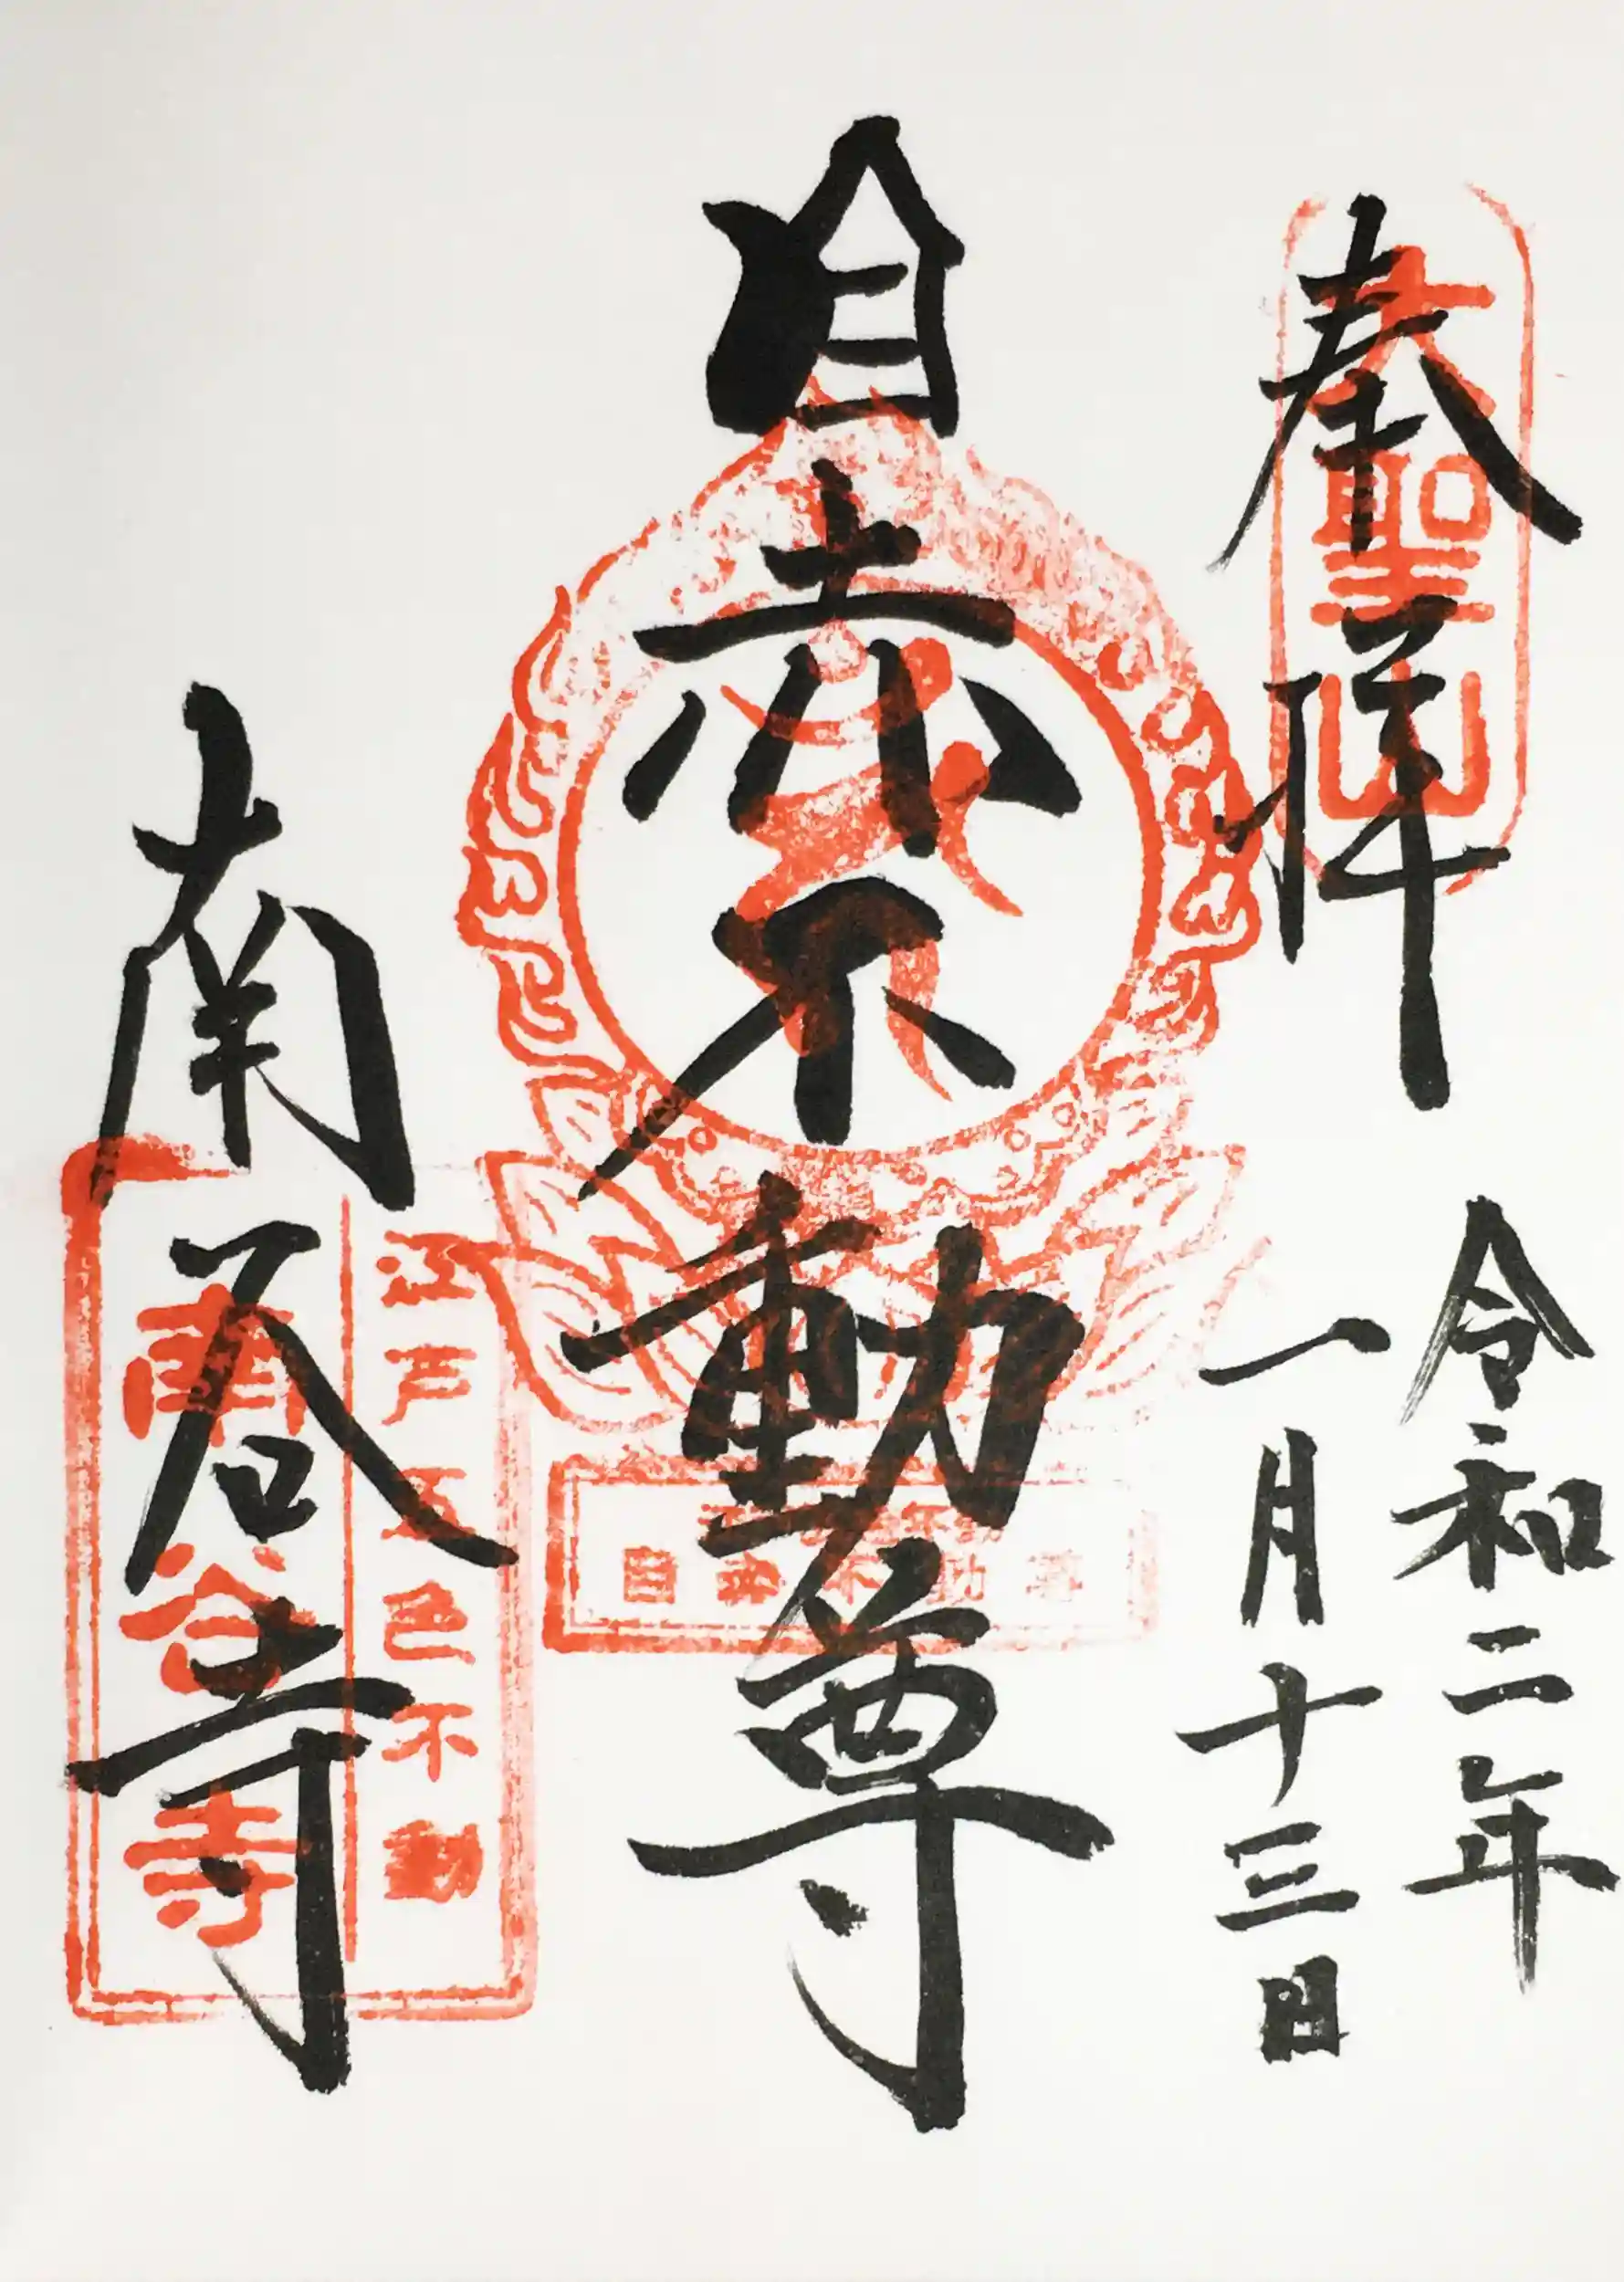 奉拝
大聖山
令和二年
一月十三日
目赤不動尊
目赤不動尊
南谷寺
江戸五色不動
南谷寺